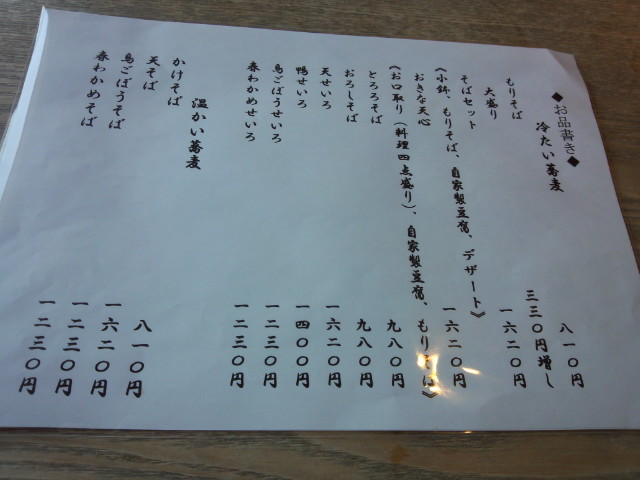 ◆お品書き◆
冷たい蕎麦
もりそば 八一〇円
大盛り 三三〇円増し
そばセット 一六二〇円
《小鉢、もりそば、自家製豆腐、デザート》
おきな天心 一六二〇円
《お口取り(料理四点盛り)、自家製豆腐、もりそば》
とろろそば 九八〇円
おろしそば 九八〇円
天せいろ 一六二〇円
鴨せいろ 一四〇〇円
鳥ごぼうせいろ 一二三〇円
春わかめせいろ 一二三〇円
温かい蕎麦
かけそば 八一〇円
天そば 一六二〇円
鳥ごぼうそば 一二三〇円
春わかめそば 一二三〇円